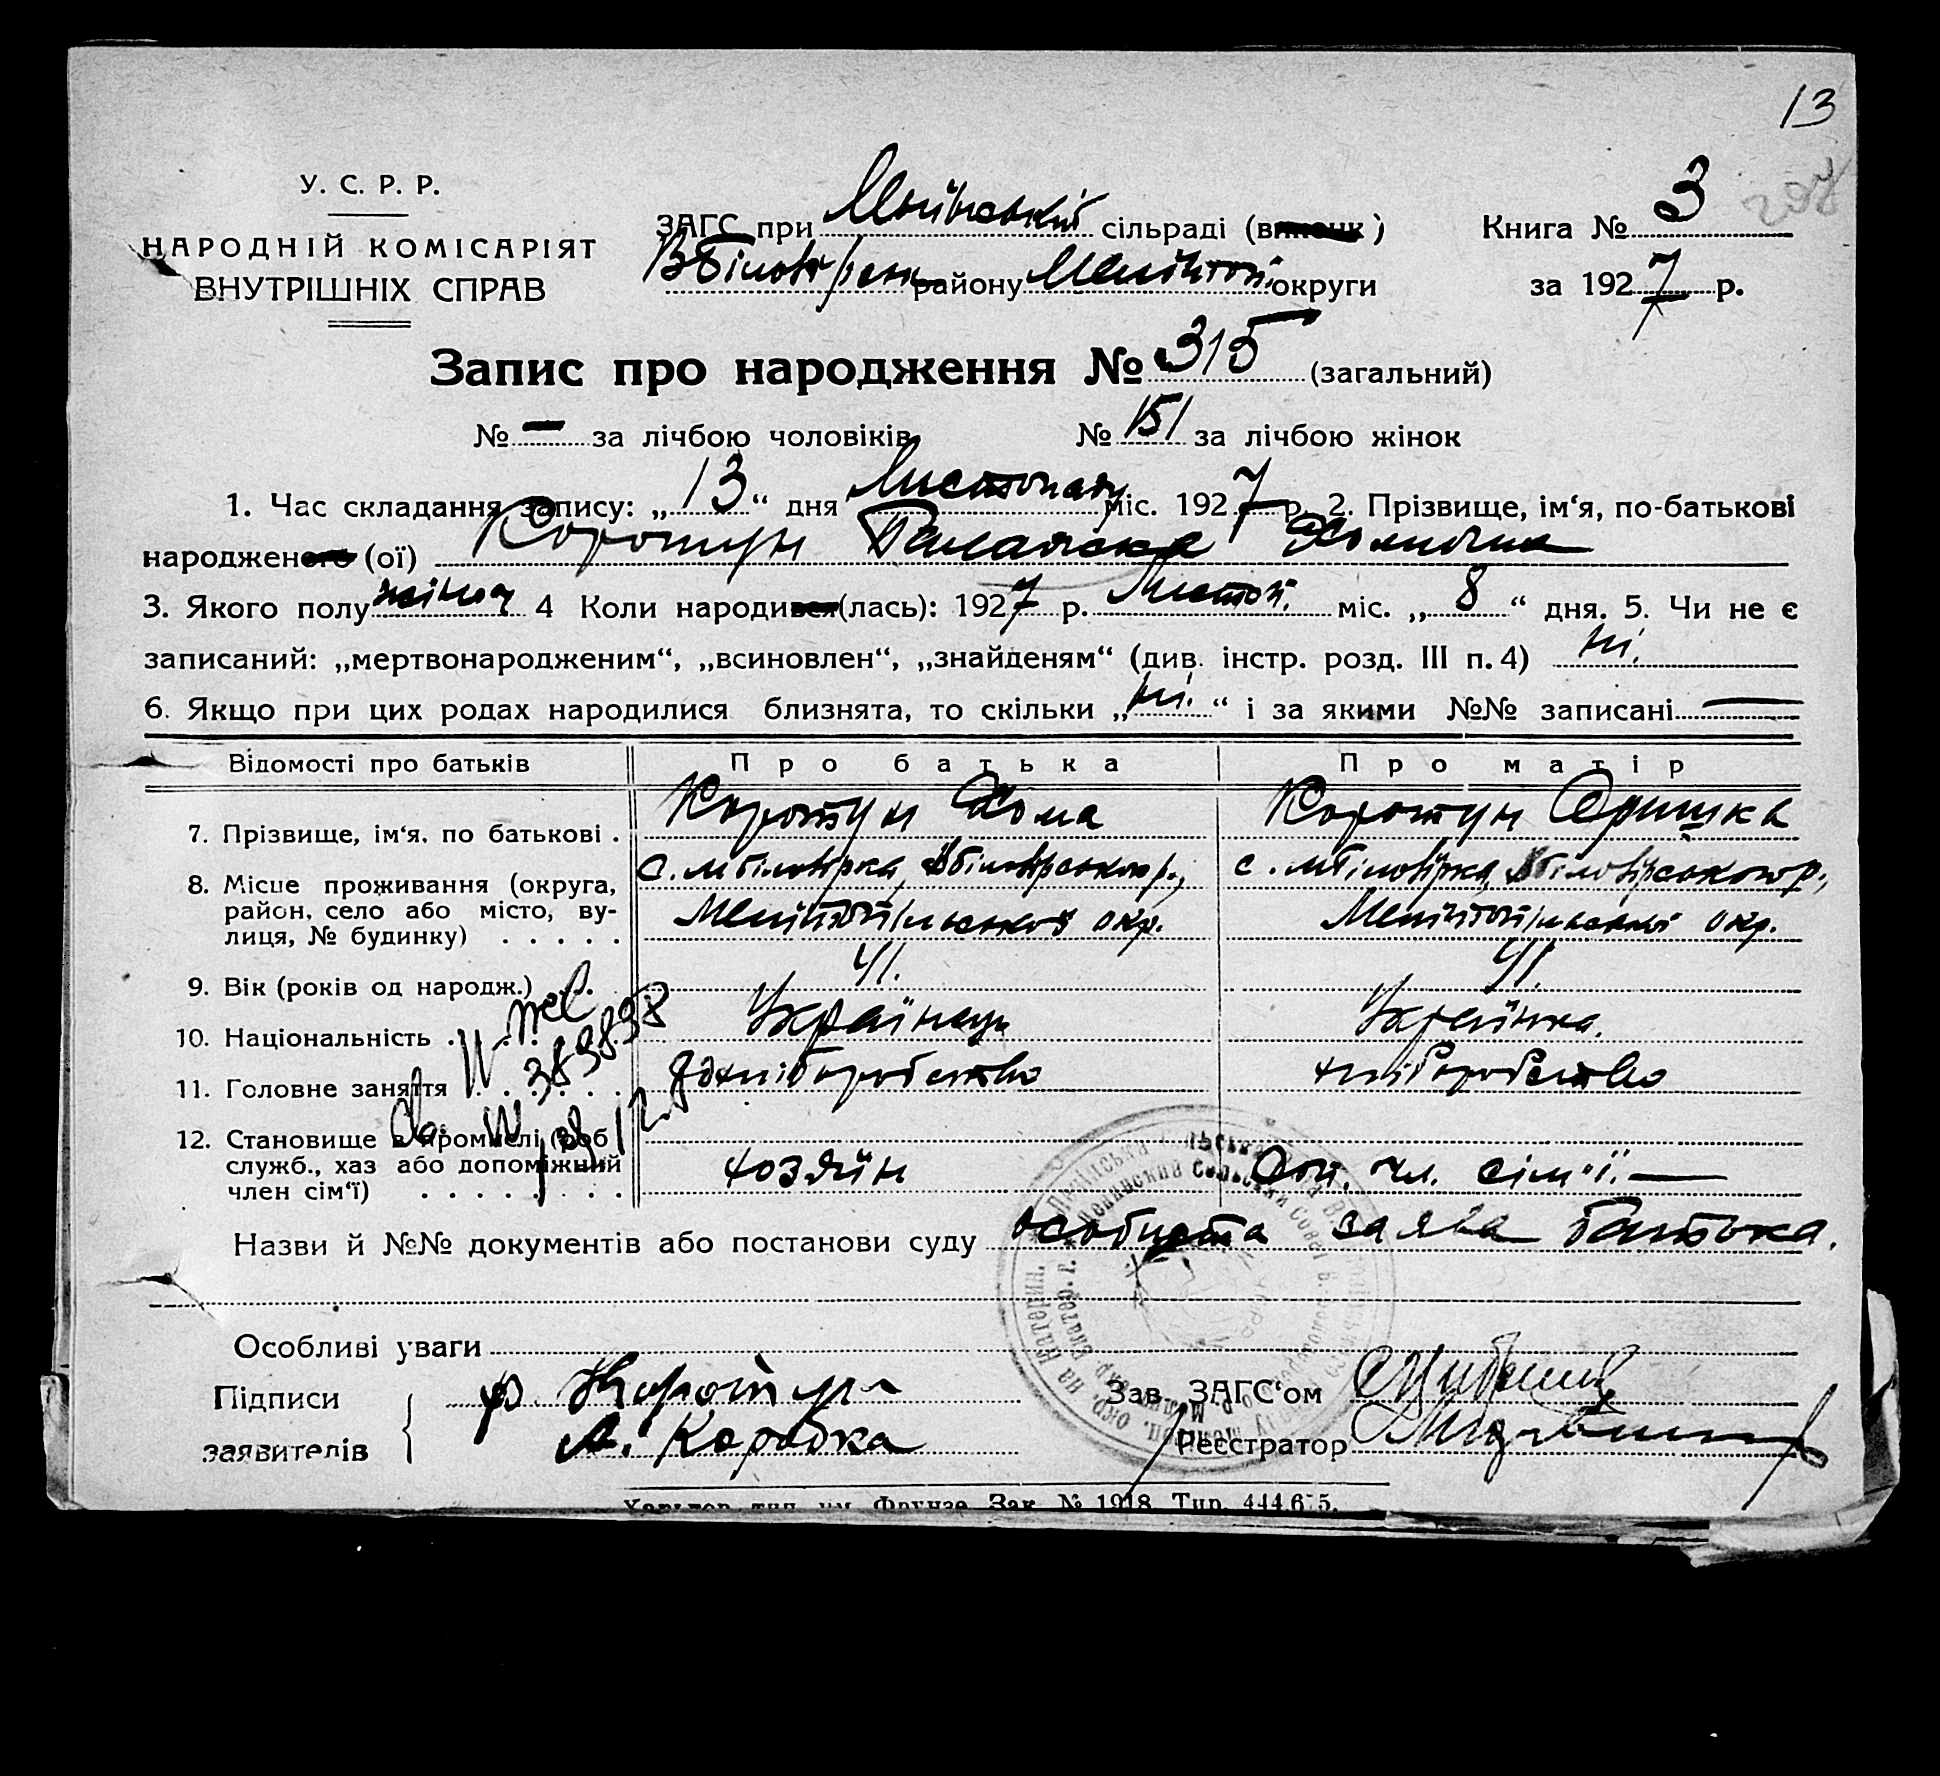 13
У. С. Р. Р.
НАРОДНІЙ КОМІСАРІЯТ
ВНУТРІШНІХ СПРАВ
ЗАГС при сільраді ( )
району Мелітоп. округи
Книга № 3
за 1927 р.
Запис про народження № 315 (загальний)
№ — за лічбою чоловіків № 151 за лічбою жінок
1. Час складання запису: „13“ дня Листопаду міс. 1927 р. 2. Прізвище, ім‘я, по-батькові
народженого (ої) Коротун Хомівна
3. Якого полу жіноч 4 Коли народився(лась): 1927 р. Листоп. міс. „8“ дня. 5. Чи не є
записаний: „мертвонародженим“, „всиновлен“, „знайденям“ (див. інстр. розд. III п. 4) ні.
6. Якщо при цих родах народилися близнята, то скільки „ні.“ і за якими №№ записані —
Відомості про батьків Про батька Про матір
7. Прізвище, ім‘я, по батькові . Коротун Хома Коротун Оришка
8. Місце проживання (округа, с. мБіловірка, с. мБіловірка,
район, село або місто, ву- Мелітопільської окр. Мелітопільської окр.
лиця, № будинку) . . . . .
9. Вік (років од народж.) . . 41. 41.
10. Національність . Українець Українка.
11. Головне заняття хліборобство хліборобство
383898
12. Становище в промислі (роб
служб., хаз або допоміжний хозяїн Доп. чл. сім‘ї. —
член сім‘ї) . . . . . . . .
Назви й №№ документів або постанови суду особиста заява батька.
Особливі уваги
Підписи Ф. Коротун Зав. ЗАГС‘ом
заявителів А. Коробка Реєстратор
Харьков, тип. им. Фрунзе. Зак. № 1918. Тир. 444.675.